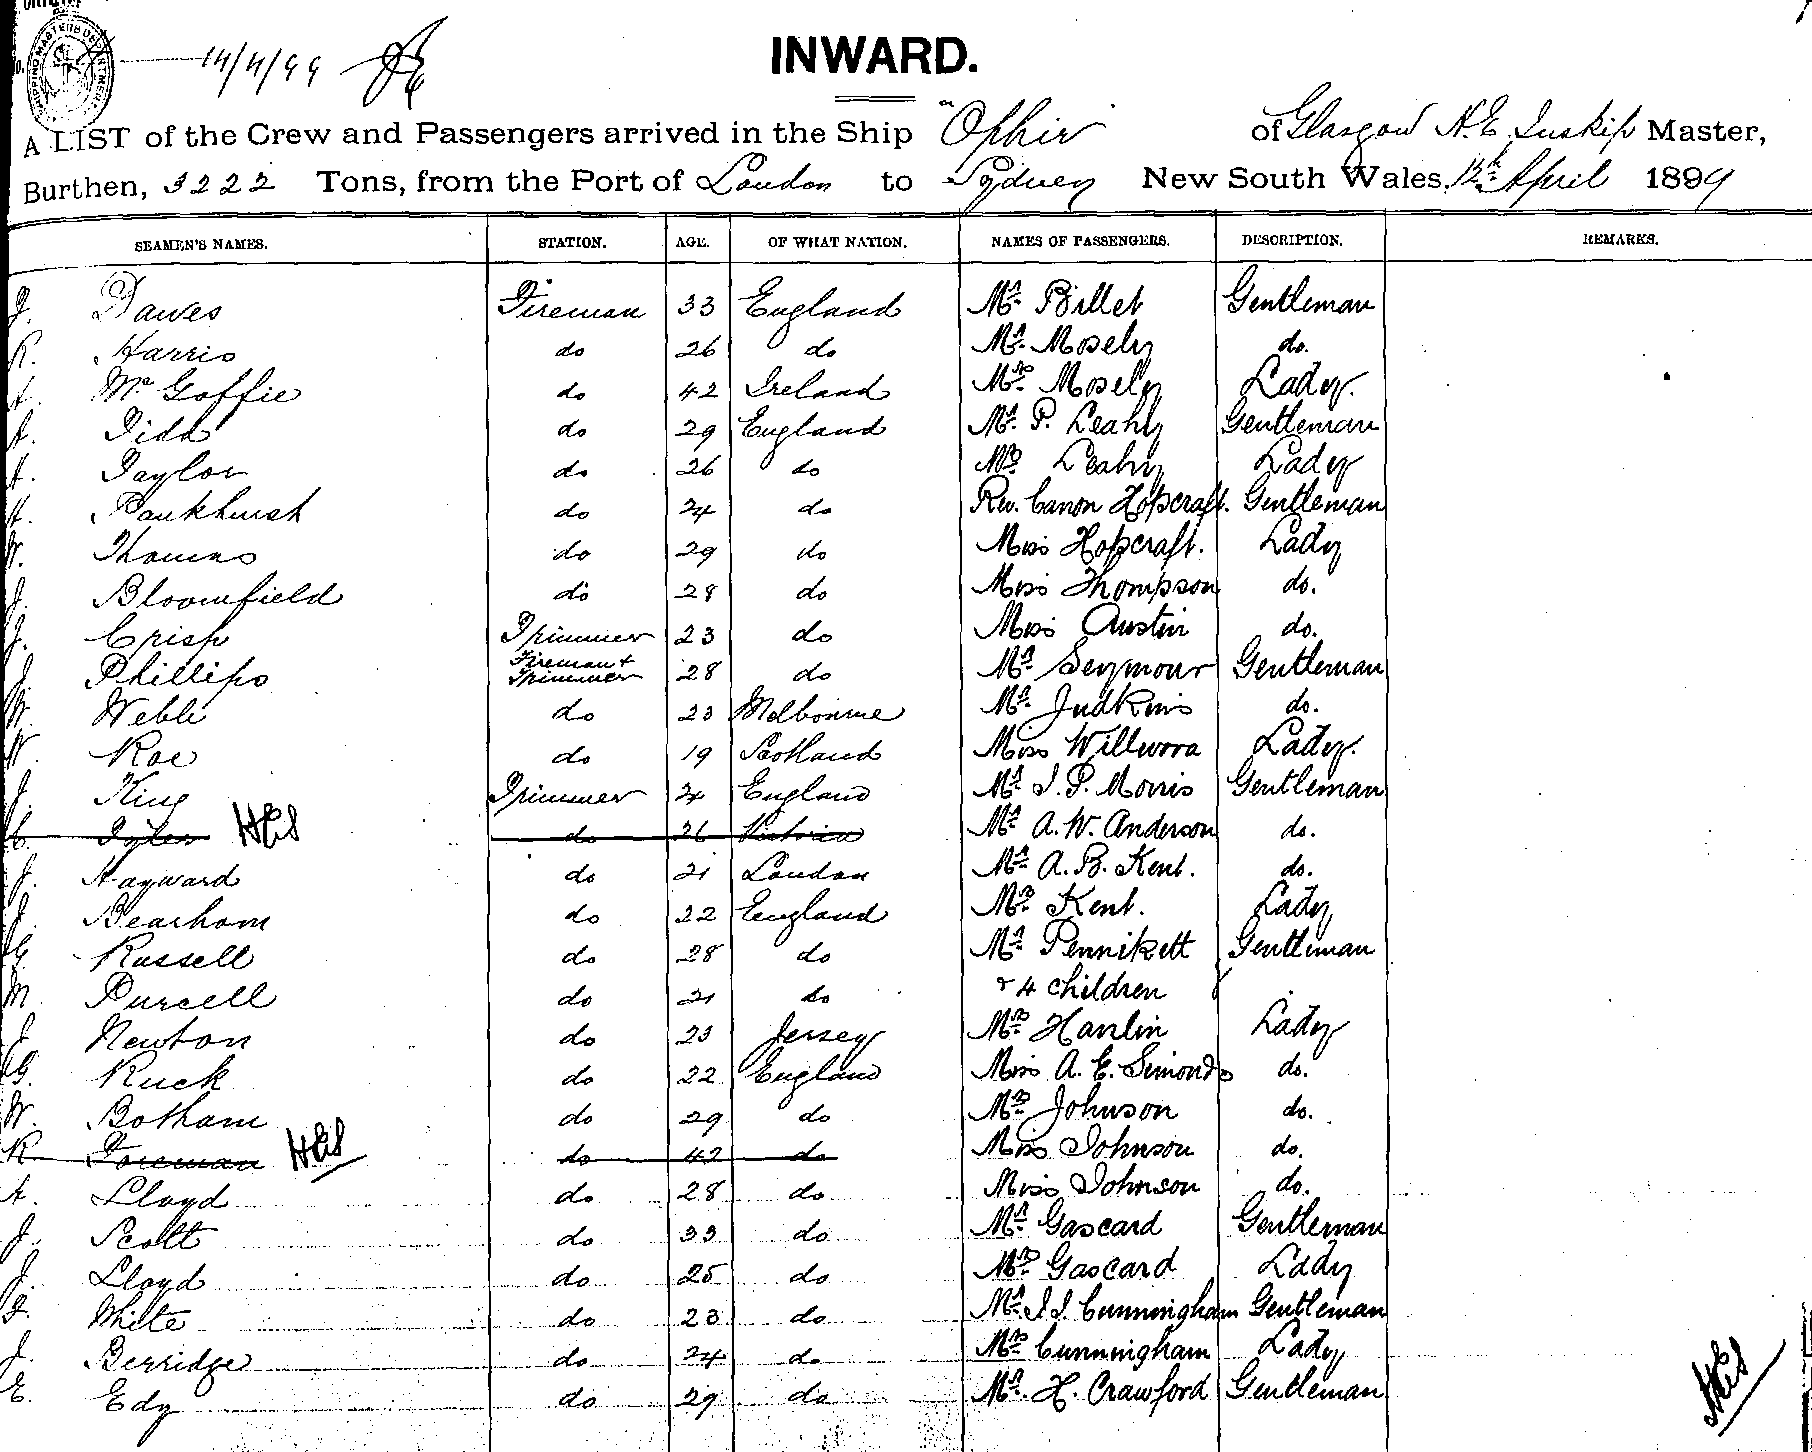 14/4/99
INWARD.
A LIST of the Crew and Passengers arrived in the Ship "Ophir" of Glasgow H.E. Inskip Master,
Burthen, 3222 Tons, from the Port of London to Sydney New South Wales, 13th April 1899
SEAMEN'S NAMES. STATION. AGE. OF WHAT NATION. NAMES OF PASSENGERS. DESCRIPTION. REMARKS.
J. Dawes Fireman 33 England Mr. Billet Gentleman
R. Harris do 26 do Mr. Mosely do.
A. McGoffie do 42 Ireland Mrs. Mosely Lady.
A. Tidd do 29 England Mr. P. Leahy Gentleman
A. Taylor do 26 do Mrs Leahy Lady
A. Pankhurst do 24 do Rev. Canon Hopcraft. Gentleman
W. Thomas do 29 do Miss Hopcraft. Lady
J. Bloomfield do 28 do Miss Thompson do.
J. Crisp Trimmer 23 do Miss Austin do.
J. Phillips Fireman + Trimmer 28 do Mr. Seymour Gentleman
W. Webb do 23 Melbourne Mr. Judkins do.
W. Roe do 19 Scotland Miss Willwora Lady.
J. King Trimmer 24 England Mr. J. P. Morris Gentleman
C. Tyler HEI do 26 Victoria Mr. A. W. Anderson do.
J. Hayward do 21 London Mr. A. B. Kent. do.
J. Bearham do 22 England Mrs. Kent. Lady
G. Russell do 28 do Mr. Pennikett Gentleman
M. Purcell do 21 do + 4 children
J. Newton do 23 Jersey Mrs. Hanlin Lady
G. Ruck do 22 England Miss A. E. Simonds do.
W. Botham do 29 do Mrs. Johnson do.
R. Foreman HEI do 42 do Miss Johnson do.
A. Lloyd do 28 do Miss Johnson do.
J. Scott do 33 do Mr. Gascard Gentleman
J. Lloyd do 25 do Mrs. Gascard Lady
F. White do 23 do Mr. J. J. Cunningham Gentleman
J. Berridge do 24 do Mrs. Cunningham Lady
E. Edy do 29 do Mr. H. Crawford Gentleman
HEI